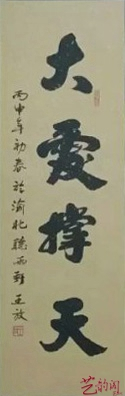 大爱撑天
丙申年初春於渝北聽雨軒王放
艺韵阁